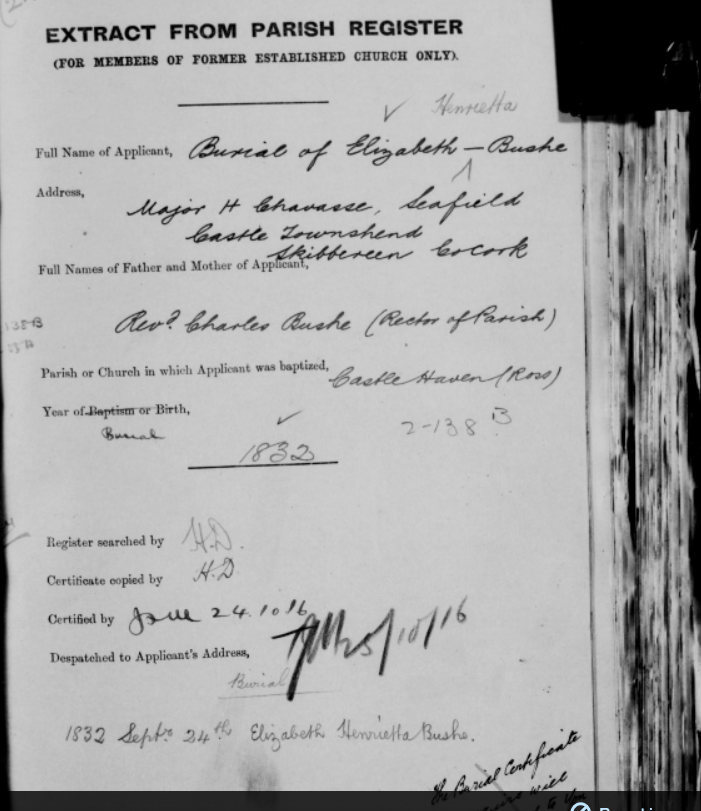 EXTRACT FROM PARISH REGISTER
(FOR MEMBERS OF FORMER ESTABLISHED CHURCH ONLY).
Henrietta
Full Name of Applicant, Burial of Elizabeth — Bushe
Address,
Major H Chavasse, Seafield
Castle Townshend
Skibbereen Co Cork
Full Names of Father and Mother of Applicant,
138B
Revd. Charles Bushe (Rector of Parish)
Parish or Church in which Applicant was baptized, Castle Haven (Ross)
Year of Baptism or Birth,
Burial
2-138 B
1832
Register searched by H.D.
Certificate copied by H.D
Certified by 24.10.16
25/10/16
Despatched to Applicant's Address,
Burial
1832 Septr 24th Elizabeth Henrietta Bushe.
The Burial Certificate
will
to you